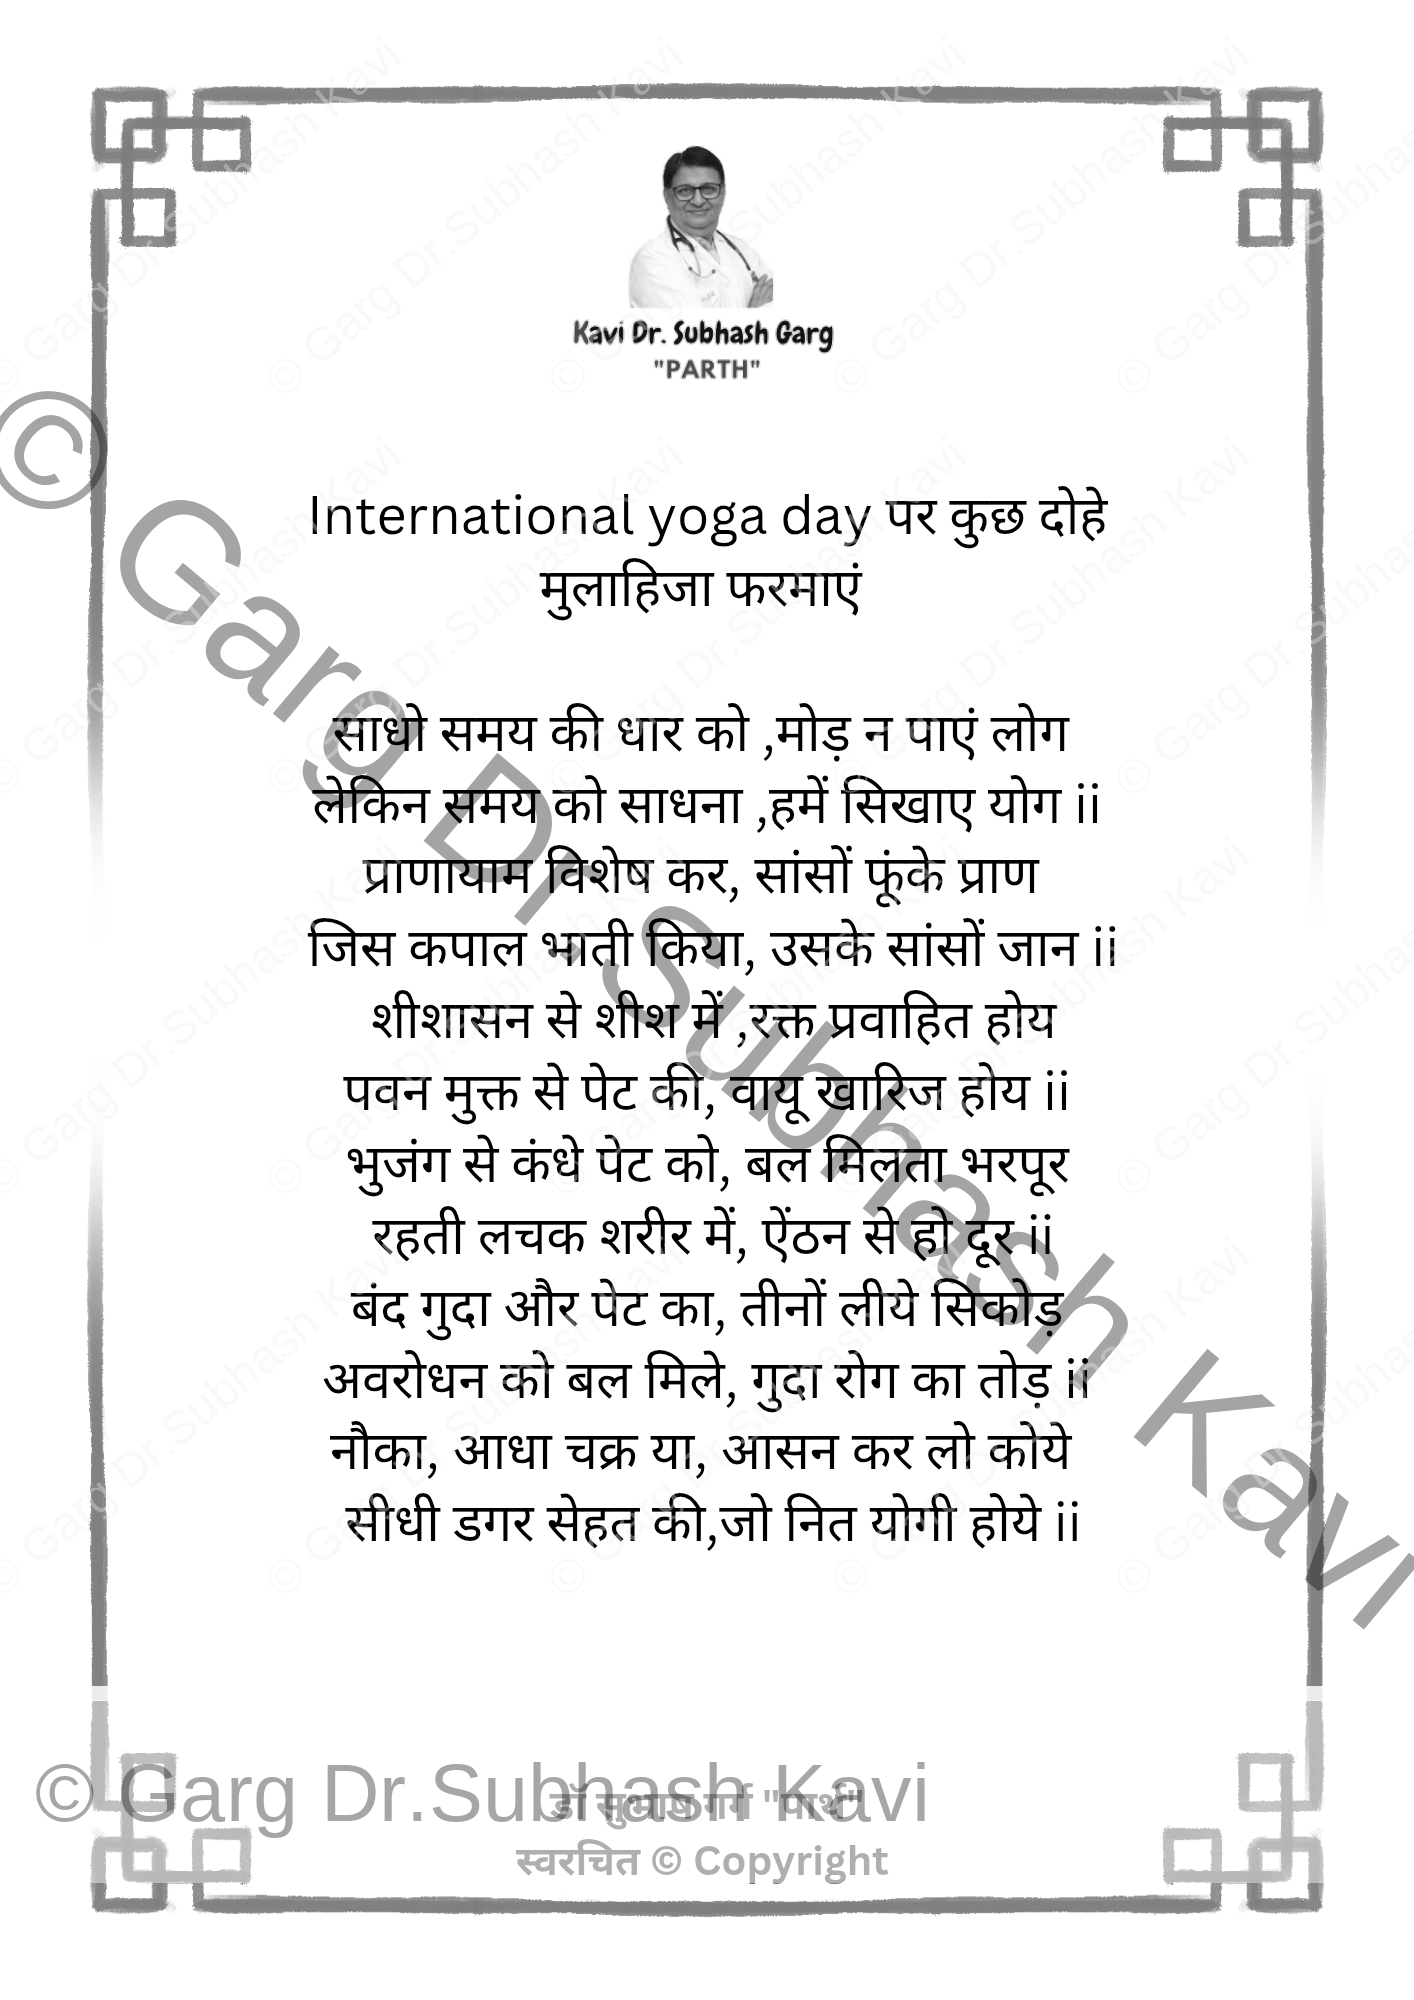 Kavi Dr. Subhash Garg
"PARTH"
International yoga day पर कुछ दोहे
मुलाहिजा फरमाएं
साधो समय की धार को ,मोड़ न पाएं लोग
लेकिन समय को साधना ,हमें सिखाए योग ii
प्राणायाम विशेष कर, सांसों फूंके प्राण
जिस कपाल भाती किया, उसके सांसों जान ii
शीशासन से शीश में ,रक्त प्रवाहित होय
पवन मुक्त से पेट की, वायू खारिज होय ii
भुजंग से कंधे पेट को, बल मिलता भरपूर
रहती लचक शरीर में, ऐंठन से हो दूर ii
बंद गुदा और पेट का, तीनों लीये सिकोड़
अवरोधन को बल मिले, गुदा रोग का तोड़ ii
नौका, आधा चक्र या, आसन कर लो कोये
सीधी डगर सेहत की,जो नित योगी होये ii
© Garg Dr.Subhash Kavi
© Garg Dr.Subhash Kavi
डॉ सुभाष गर्ग "पार्थ"
स्वरचित © Copyright